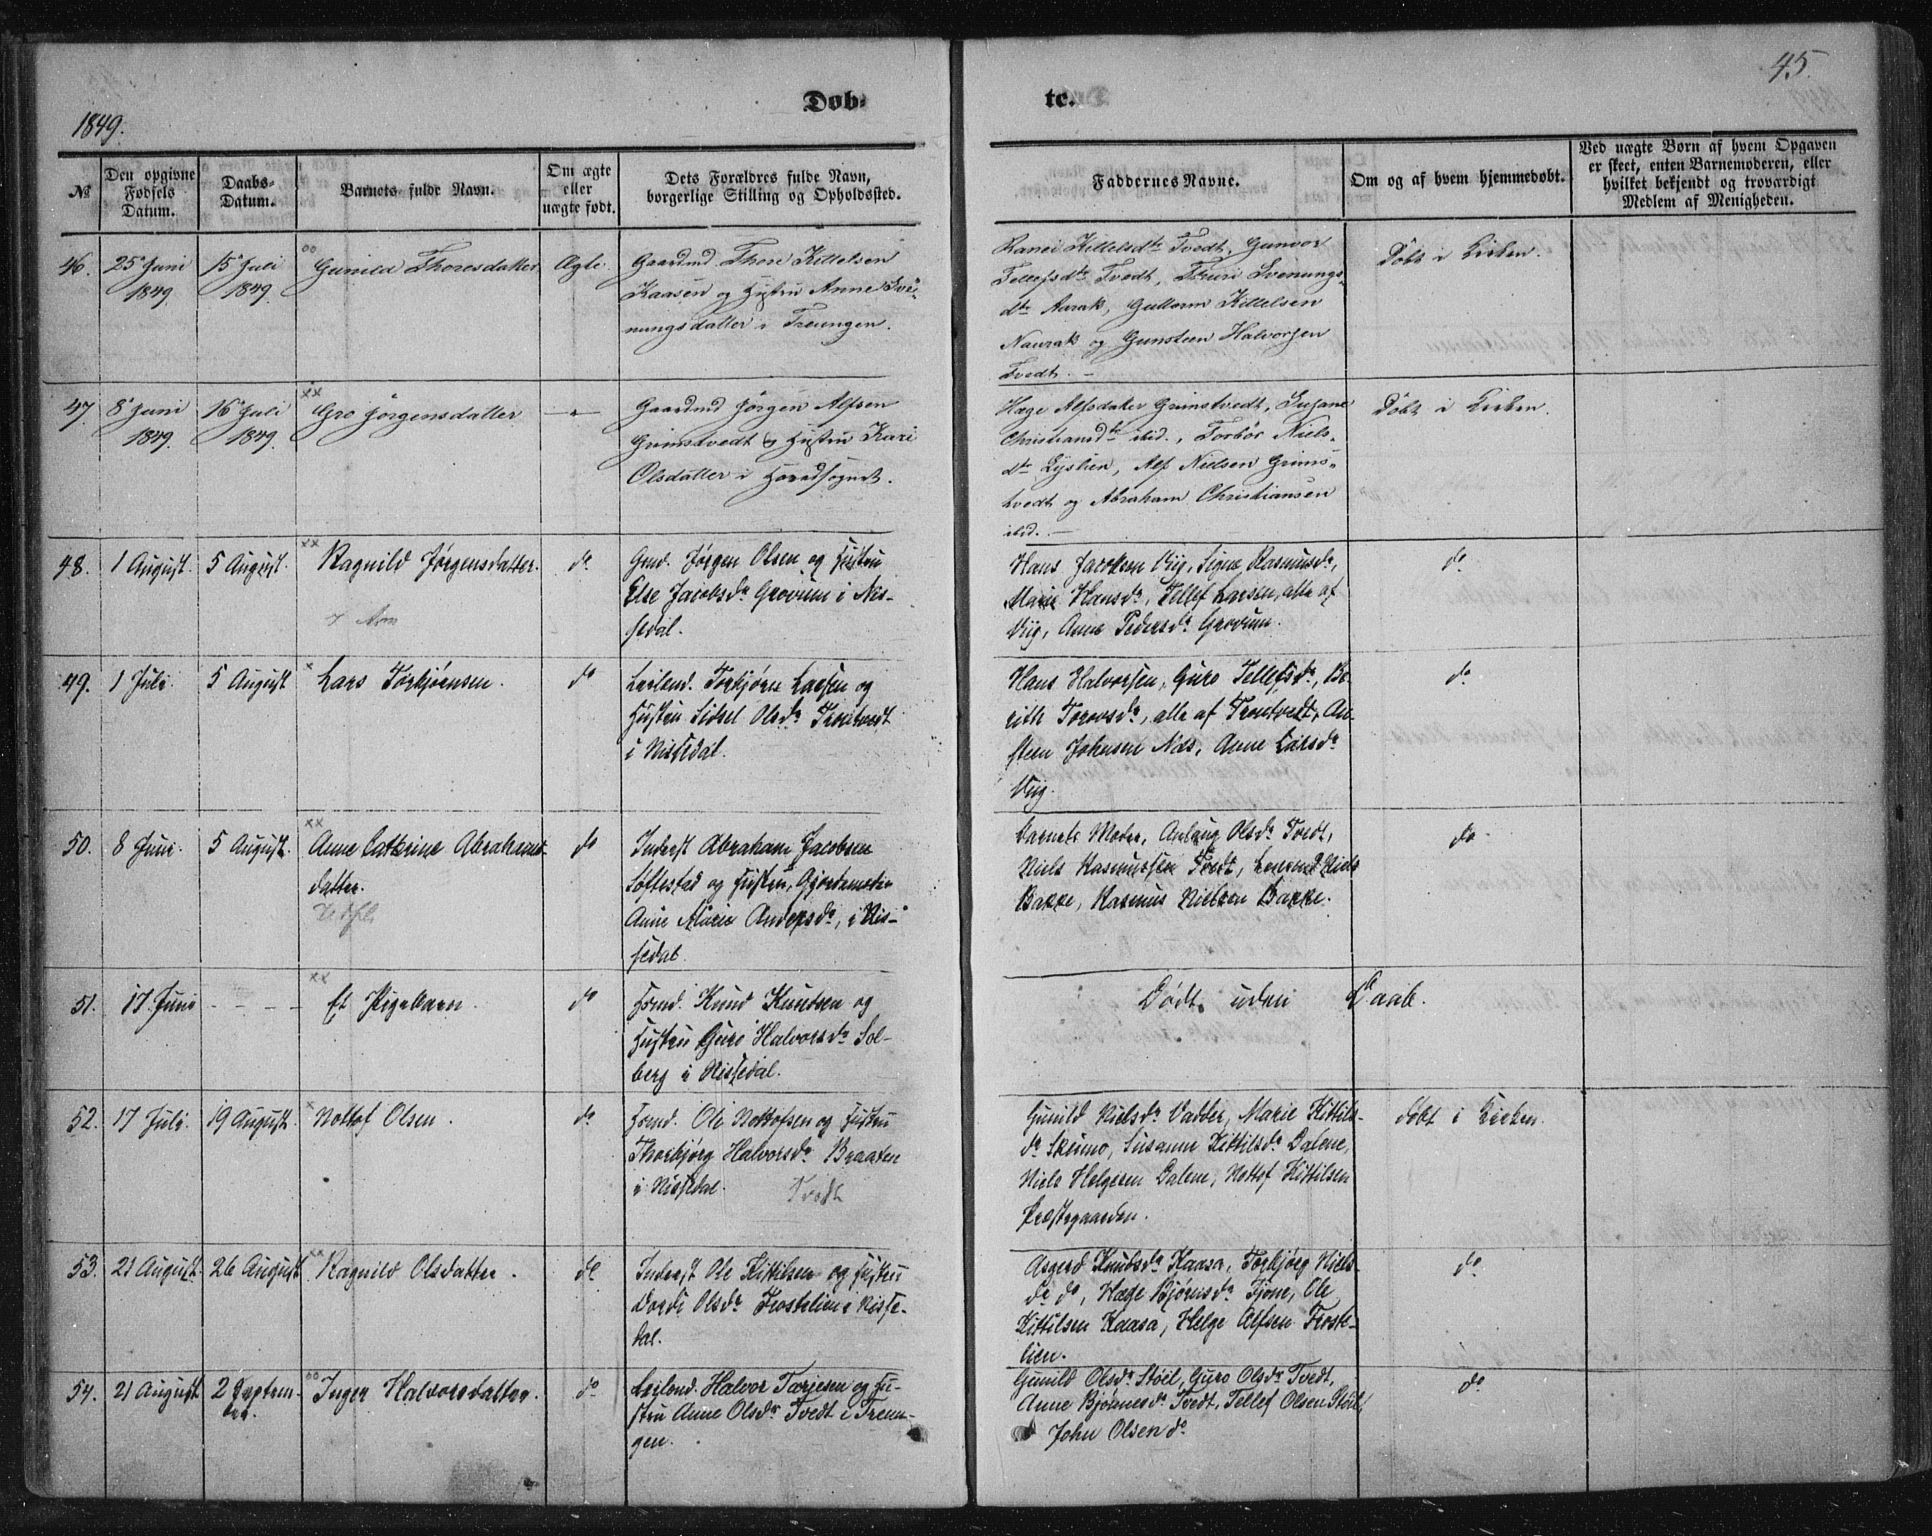 45.
Døb-
te.
1849.
№
Den opgivne
Fødsels
Datum.
Daabs-
Datum.
Barnets fulde Navn.
Om ægte
eller
uægte født.
Dets Forældres fulde Navn,
borgerlige Stilling og Opholdssted.
Faddernes Navne.
Om og af hvem hjemmedøbt.
Ved uægte Børn af hvem Opgaven
er skeet, enten Barnemoderen, eller
hvilket bekjendt og troværdigt
Medlem af Menigheden.
46.
25 Juni
1849
15 Juli
1849
oo
Gunild Thoresdatter
Ægte
Gaardmd Thore Kittelsen
Kaasen og Hustru Anne Svei-
nungsdatter i Treungen.
Ranei Kittelsdtr Tvedt, Gunvor
Tellefsdtr Tvedt, Thuri Svenungs-
dtr Aarak, Guttorm Kittelsen
Naurak og Gunsteen Halvorsen
Tvedt. —
Døbt i Kirken.
47.
8 Juni
1849.
16 Juli
1849.
xx
Gro Jørgensdatter
—"—
Gaardmd Jørgen Alfsen
Grimstvedt & Hustru Kari
Olsdatter i Hovedsognet.
Hæge Alfsdatter Grimstvedt, Susane
Christiansdtr ibid., Torbør Niels-
dtr Lyslien, Alf Nielsen Grims-
tvedt og Abraham Christiansen
ibid. —
Døbt i Kirken.
48.
1 August.
5 August.
xx
Ragnild Jørgensdatter.
do
Gmd. Jørgen Olsen og Hustru
Else Jacobsdr Grovum i Nis-
sedal.
Hans Jacobsen Viig, Signe Rasmusdr,
Marie Hansdr, Tellef Larsen, alle af
Viig, Anne Pedersdr Grovum.
do
49.
1 Juli.
5 August
x
Lars Torkjørnsen.
do
Leilend. Torkjørn Larsen og
Hustru Sidsel Olsdr Trontvedt
i Nissedal.
Hans Halvorsen, Guro Tellefsdr, Be-
rith Torovsdr, alle af Trontvedt, An-
steen Johnsen Næs, Anne Larsdr
Viig.
do
50.
8 Juni.
5 August.
xx
Anne Cathrine Abrahams-
datter.
do
Inderst Abraham Jacobsen
Søftestad og Hustru, Gjordemoder
Anne Marie Andersdr, i Nis-
sedal.
Barnets Moder, Anlaug Olsdr Tvedt,
Niels Rasmussen Tvedt, Lensmd Niels
Bakke, Rasmus Nielsen Bakke.
do
51.
17 Juni
- - - -
xx
Et Pigebarn.
do
Gmd. Knud Knutsen og
Hustru Guro Halvorsdr Sol-
berg i Nissedal.
Dødt uden Daab.
52.
17 Juli.
19 August.
x
Nottof Olsen.
do
Gmd. Ole Nottofsen og Hustru
Thorbjørg Halvorsdr Braaten
i Nissedal.
Tvedt
Gunild Nielsdr Vadder, Marie Kittils-
dr Skumo, Susanne Kittilsdr Dalene,
Niels Helgesen Dalene, Nottof Kittilsen
Præstegaarden.
døbt i Kirken.
53.
21 August.
26 August.
xx
Ragnild Olsdatter.
do
Inderst Ole Kittilsen og Hustru
Dordi Olsdr Frostelien i Nisse-
dal.
Asgerd Knudsdr Kaasa, Torbjørg Niels-
dr do, Hæge Bjørnsdr Tjøne, Ole
Kittilsen Kaasa, Helge Alfsen Froste-
lien.
do
54.
21 August.
2 Septem-
ber.
oo
Inger Halvorsdatter.
do
Leilend. Halvor Tarjesen og Hu-
stru Anne Olsdr Tvedt i Treun-
gen.
Gunild Olsdr Støil, Guro Olsdr Tvedt,
Anne Bjørnsdr Tvedt, Tellef Olsen Støil,
John Olsen do
do